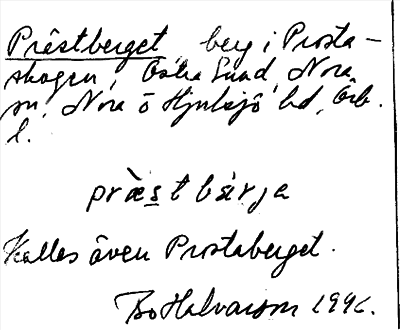 Prästberget, berg i Prosta-
skogen, Östra Sund, Nora
sn, Nora o Hjulsjö bd, Örb.
l.
præ̀st bærja
Kallas även Prostaberget.
Bo Halvarson 1996.